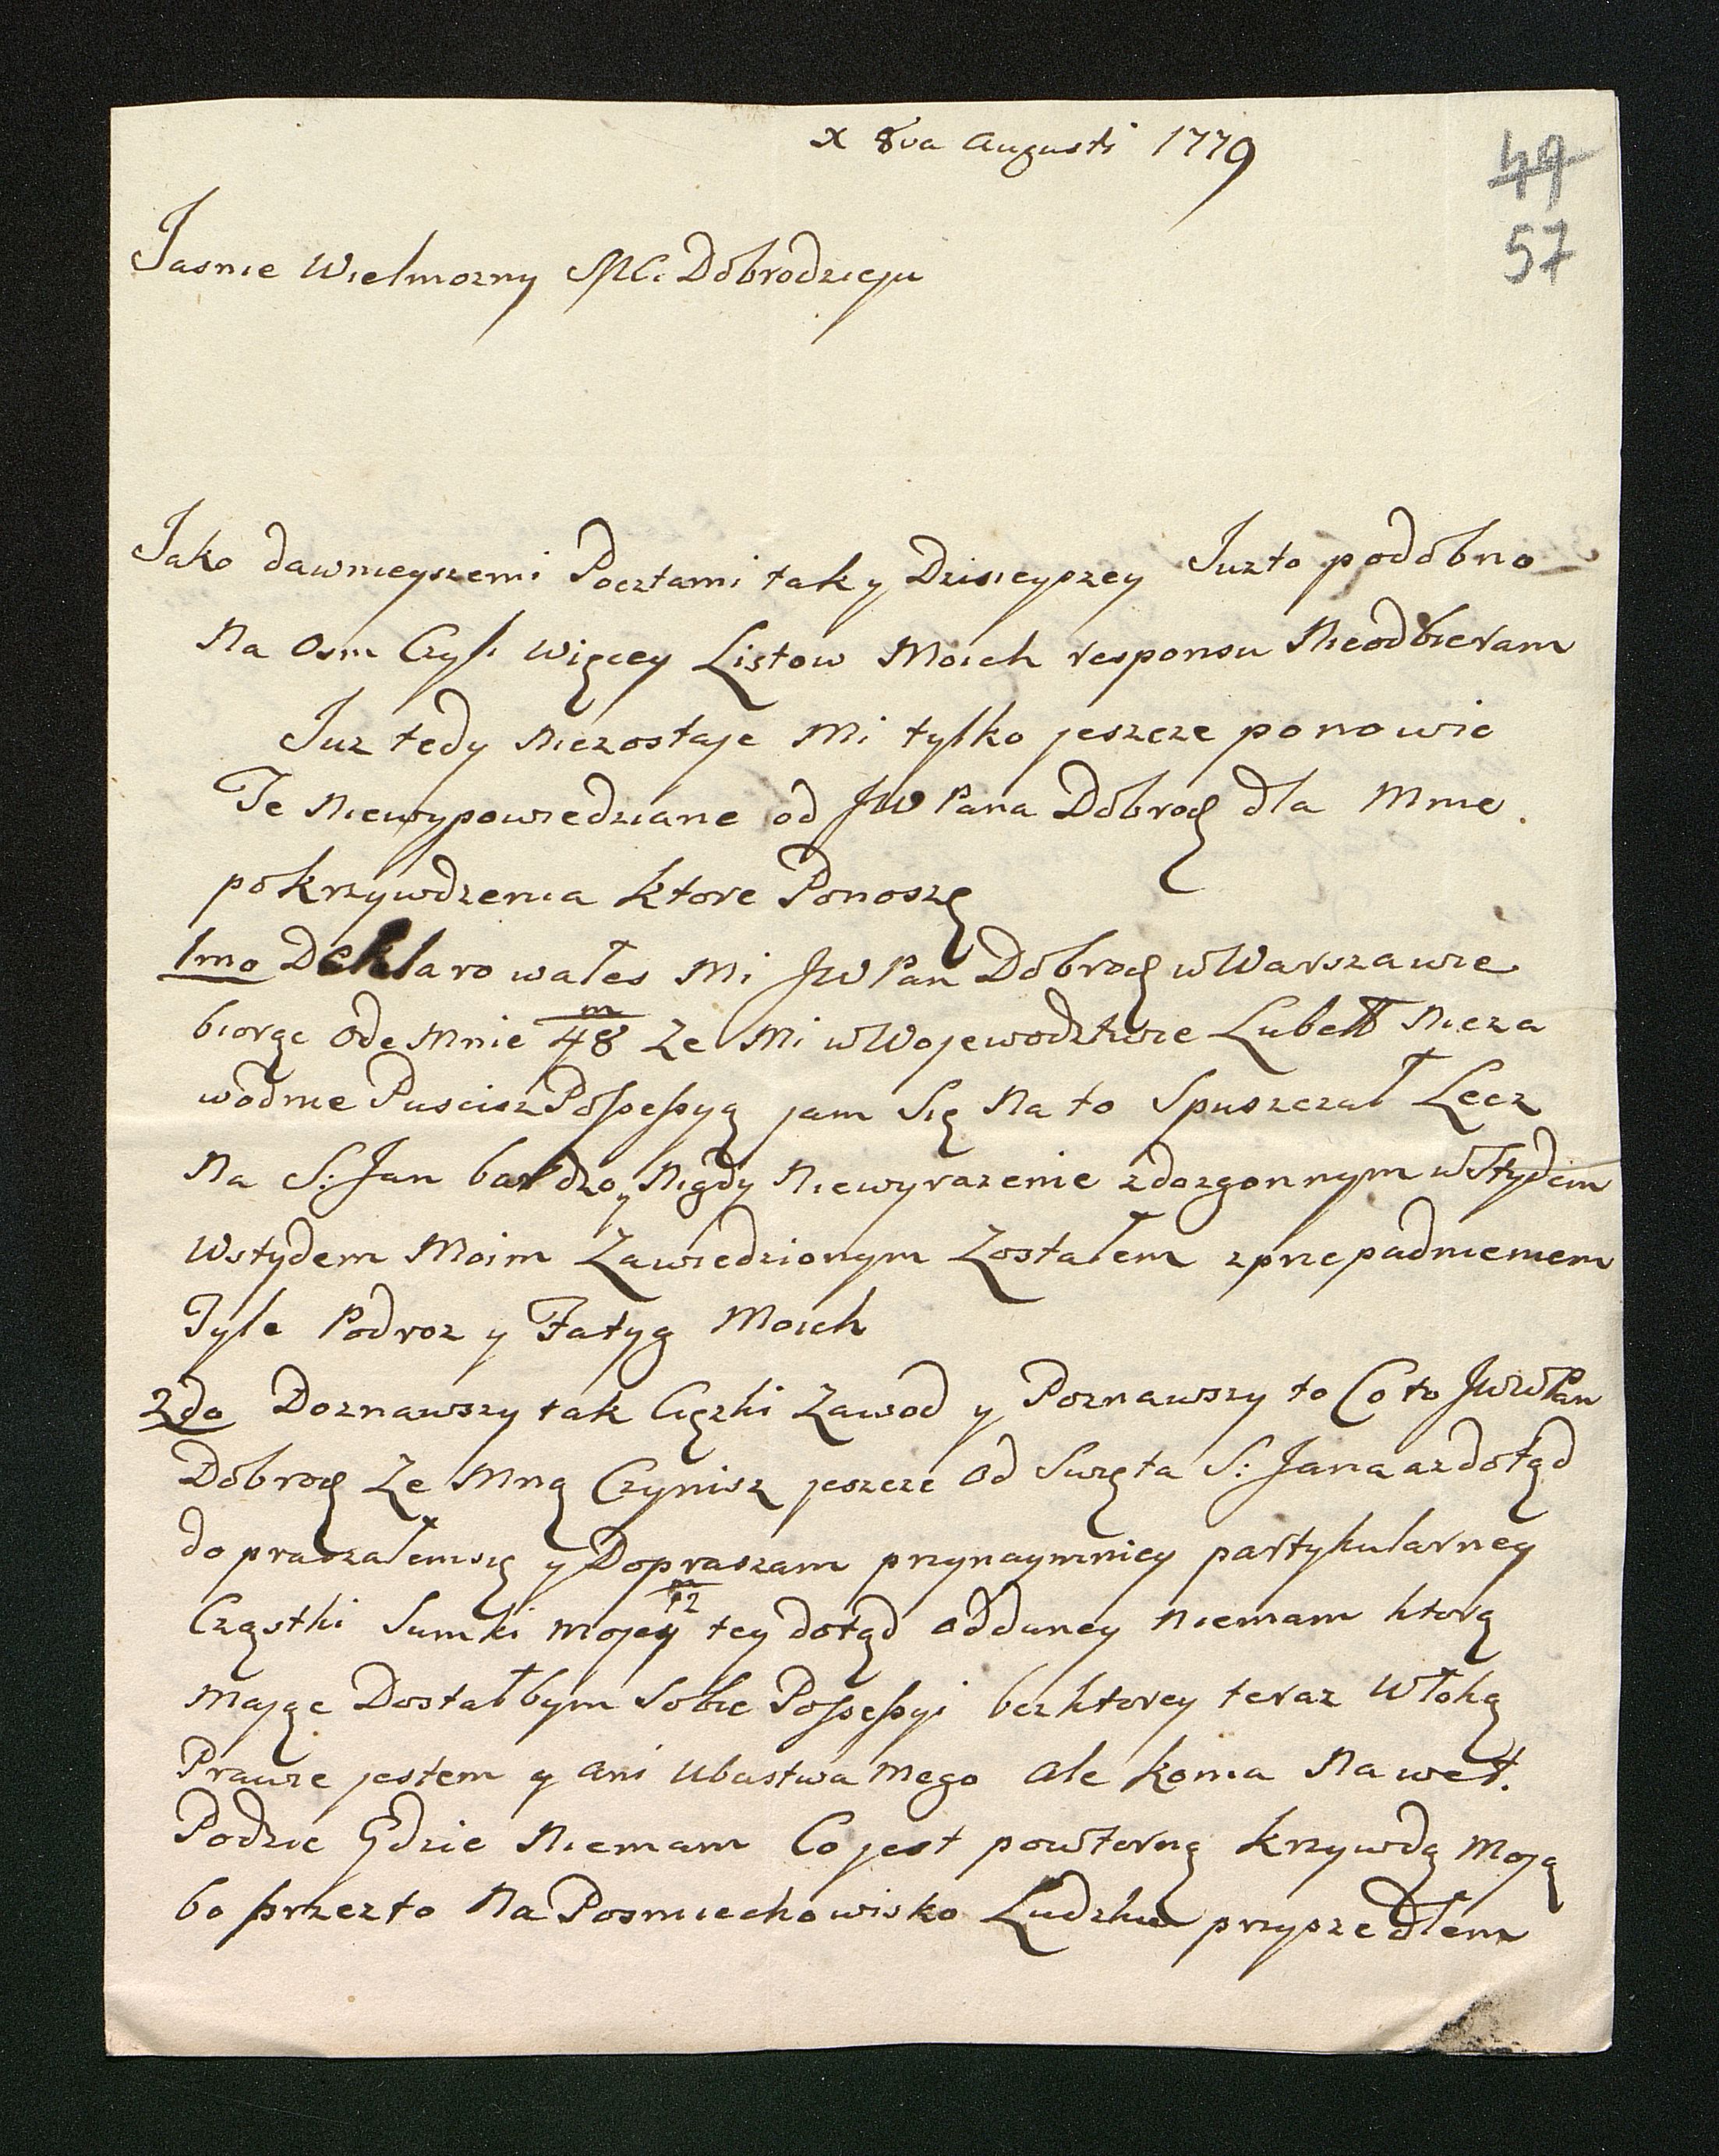 x 8va Augusti 1779
49
57
Jasnie Wielmozny MC. Dobrodzieju
Jako dawnieyszemi Pocztami tak y Dzisieyszey Juzto podobno
Na Osm Czyli więcey Listow Moich responsu Nieodbieram
Juz tedy Niezostaje Mi tylko jeszcze ponowic
Te Niewypowiedziane od JW Pana Dobrodz dla Mnie
pokrzywdzenia ktore Ponoszę
1mo Deklarowałes Mi JW Pan Dobrodz w Warszawie
biorąc Ode Mnie m/48 Ze Mi w Wojewodztwie Lubell Nieza
wodnie Puscisz Possessyą jam Się Na to Spuszczał Lecz
Na S: Jan bardzo y Nigdy Niewyrazenie zdozgonnym wstydem
Wstydem Moim Zawiedzionym Zostałem zprzepadnieniem
Tyle Podroz y Fatyg Moich
2do Doznawszy tak Cięzki Zawod y Poznawszy to Co to JWW Pan
Dobrodz Ze Mną Czynisz jeszcze Od Swięta S: Jana azdotąd
dopraszałemsię y Dopraszam przynaymniey partykularney
Cząstki Sumki mojey m/12 tey dotąd oddaney niemam ktorą
mając Dostałbym Sobie Possessyi bezktorey teraz Włokę
Prawie jestem y ani Ubustwa mego ale konia Nawet.
Podzie Gdzie Niemam Co jest powtorną krzywdą moją
bo przezto Na Posmiechowisko Ludzkie przyszedłem